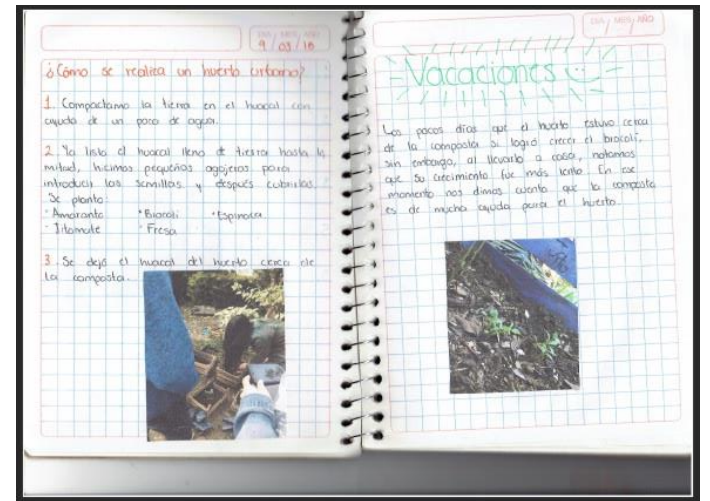 DIA / MES / AÑO
9 / 03 / 18
¿Cómo se realiza un huerto urbano?
1. Compactamo la tierra en el huacal con
ayuda de un poco de agua.
2. Ya listo el huacal lleno de tierra hasta la
mitad, hicimos pequeños agujeros para
introducir las semillas y después cubrirlas.
Se planto:
· Amaranto · Brocoli · Espinaca
· Jitomate · Fresa
3. Se dejó el huacal del huerto cerca de
la composta.
DIA / MES / AÑO
Vacaciones
Los pocos días que el huerto estuvo cerca
de la composta si logró crecer el brocoli,
sin embargo, al llevarlo a casa, notamos
que su crecimiento fue más lento. En ese
momento nos dimos cuenta que la composta
es de mucha ayuda para el huerto.